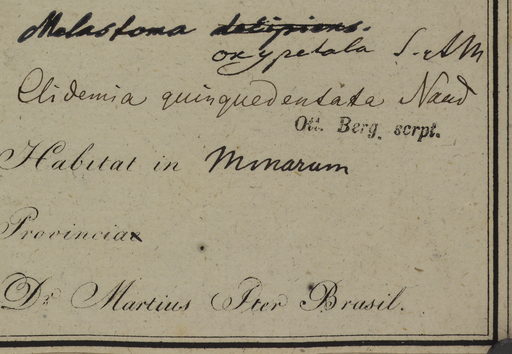 Melastoma decipiens.
oxypetala S. et M
Clidemia quinquedentata Naud
Ott. Berg. scrpt.
Habitat in Minarum
Provinciae
Dr Martius Iter Brasil.